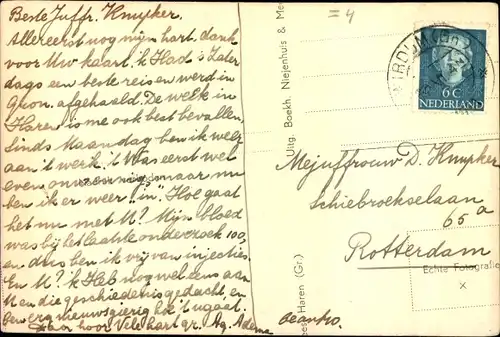 Beste Juffr. Kmijker.
Allereerst nog mijn hart. dank
voor Uw kaart. 'k Had 's Zater
dags een beste reis en werd in
Gron. afgehaald. De week in
Haren is me ook best bevallen.
Sinds Maandag ben ik weer
aan 't werk. 't Was eerst wel
even maar nu
ben ik er weer "in". Hoe gaat
het nu met U? Mijn bloed
was bij het laatste onderzoek 100,
en dus ben ik vrij van injecties.
En U? 'k Heb nog wel eens aan
U en die geschiedenis gedacht, en
ben erg nieuwsgierig hoe 't U gaat.
Daar hoor Vele hart gr. Ag. Adema
= 4
Uitg. Boekh. Niejenhuis &
Haren (Gr.)
6 C
NEDERLAND
Mejuffrouw D. Kmijker
Schiebroekselaan
65a
Rotterdam
Echte Fotografie
x